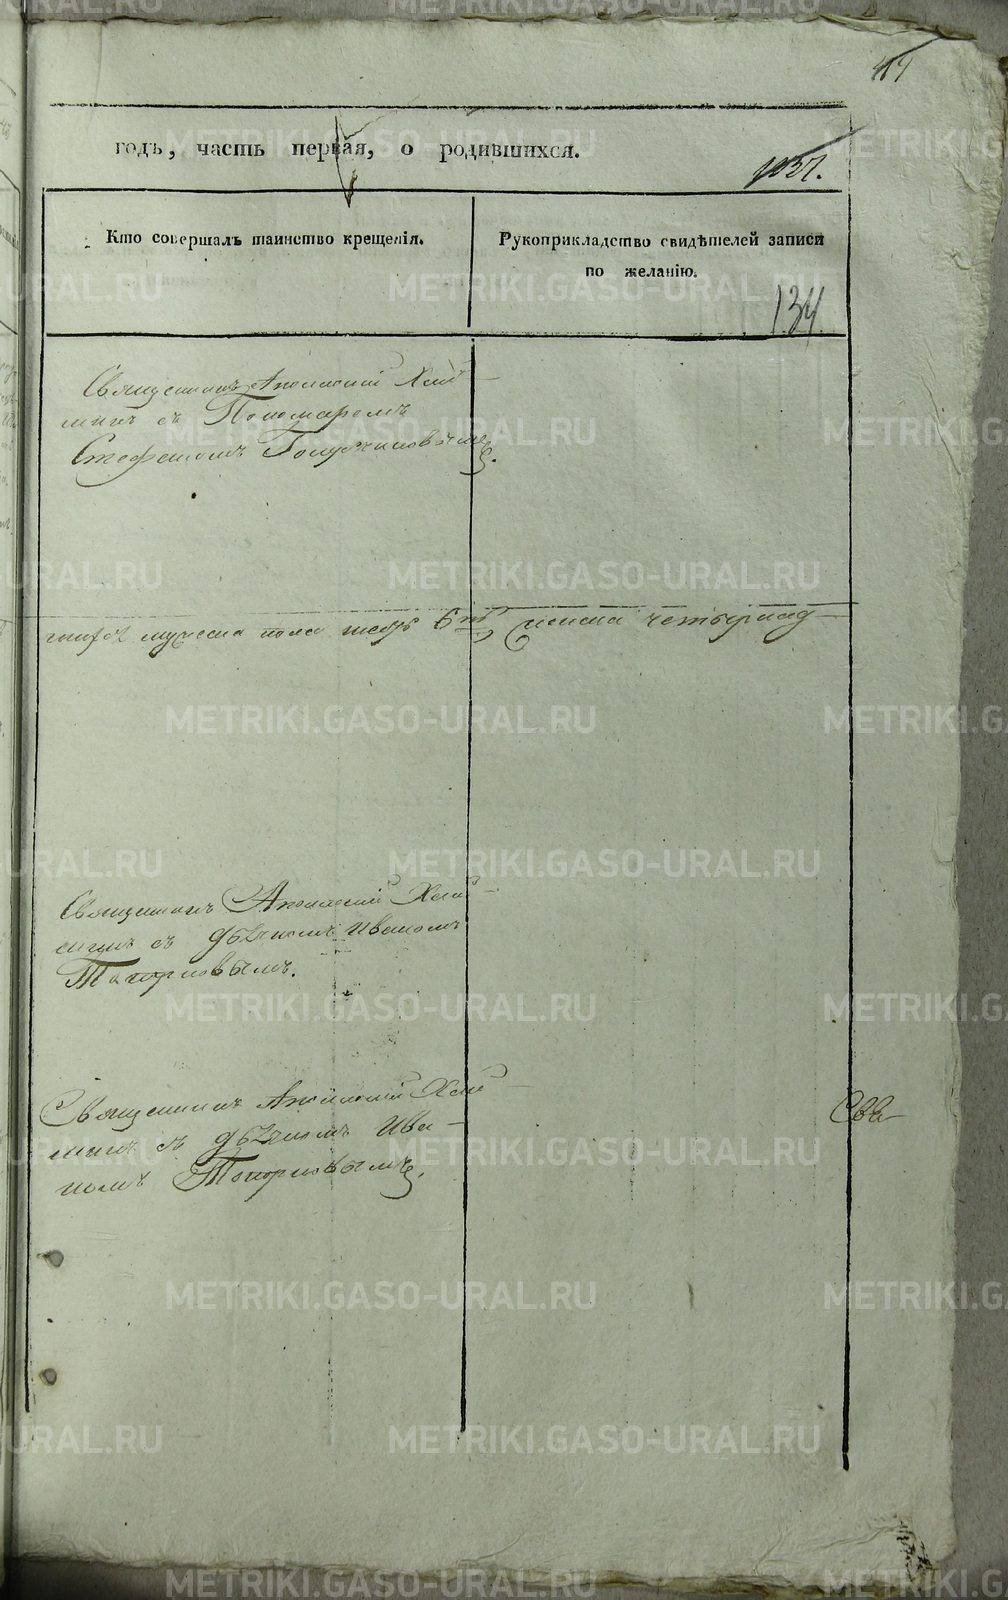 414
годъ, часть первая, о родившихся.
1037.
Кто совершалъ таинство крещенія.
Рукоприкладство свидѣтелей записи
по желанію.
134
Священникъ Аполлоній Хлы-
нинъ съ Пономаремъ
Стефаномъ
мужеска пола шесть 6ть женска четырнад
Священникъ Аполлоній
съ дьячкомъ Иваномъ
Топорковымъ.
Священникъ Аполлоній
съ дьячкомъ Ива-
номъ Топорковымъ.
METRIKI.GASO-URAL.RU